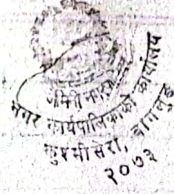 नगर कार्यपालिकाको कार्यालय
कुश्मीसेरा, बागलुङ
२०७३